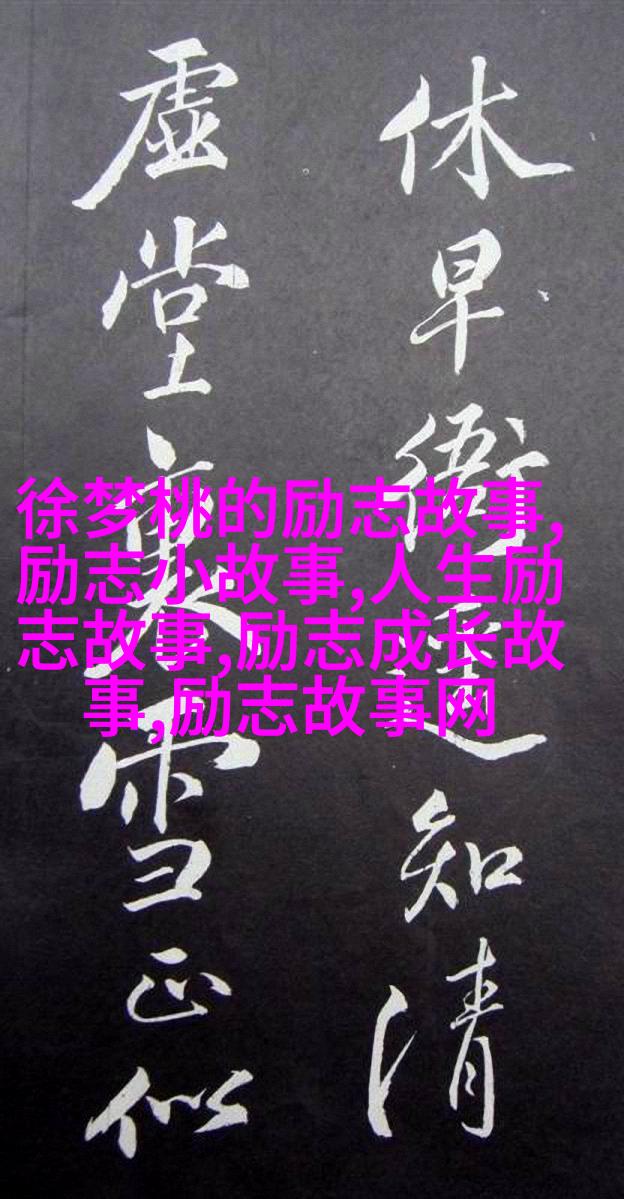 徐梦桃的励志故事,
励志小故事,人生励
志故事,励志成长故
事,励志故事网
休早衙知清
虛堂雪正似